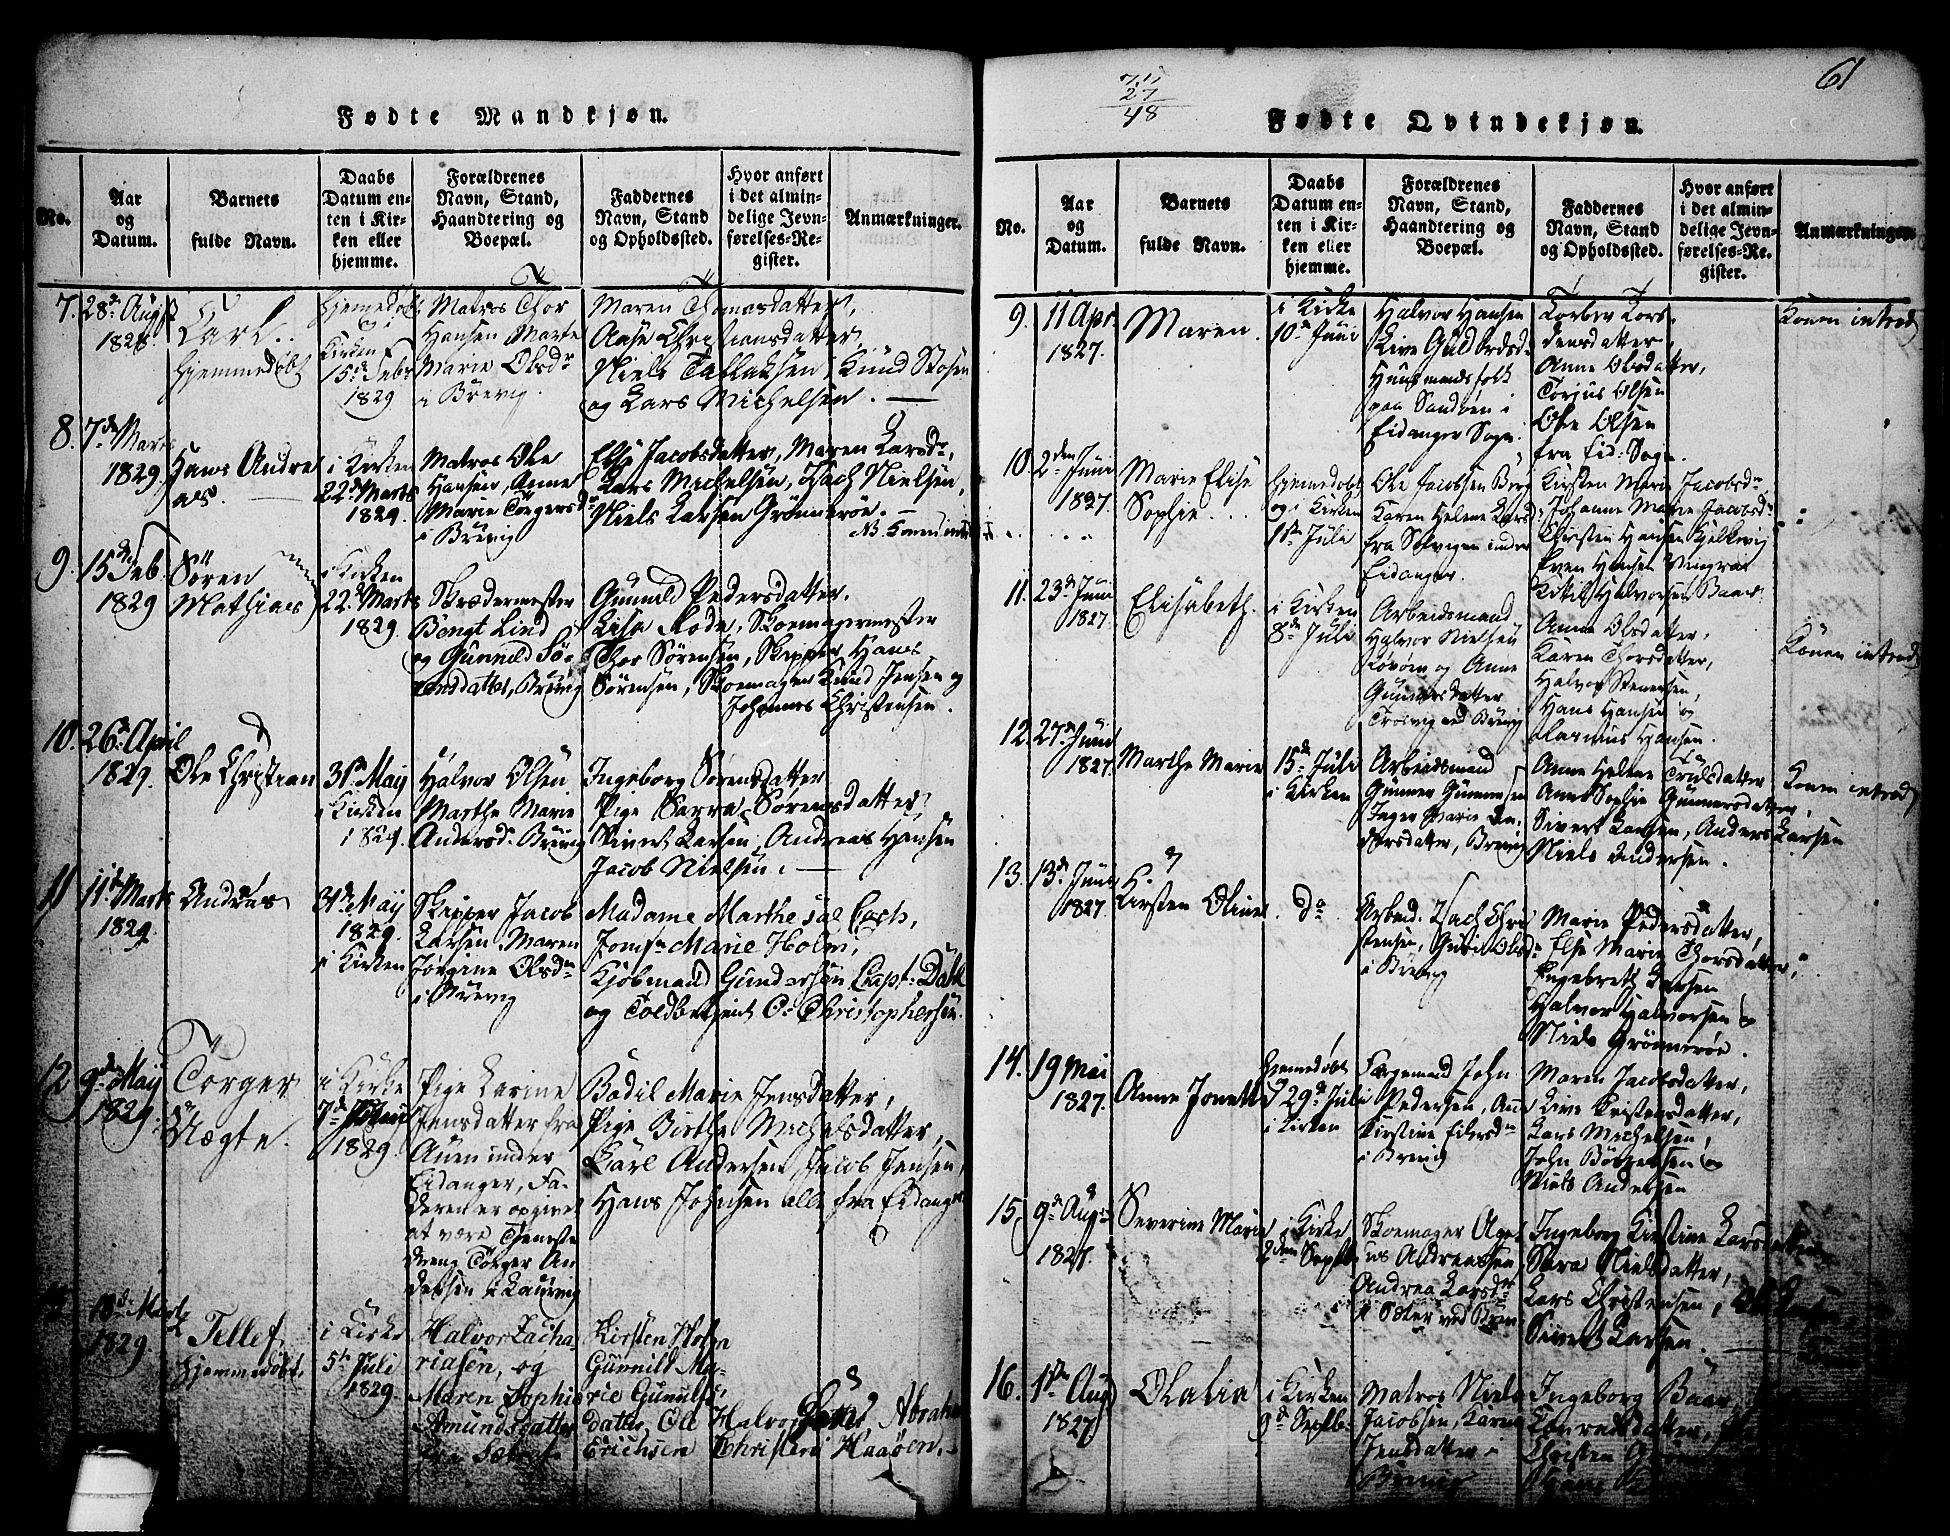 Fødte Mandkjøn.
No.
Aar og Datum.
Barnets fulde Navn.
Daabs Datum enten i Kirken eller hjemme.
Forældrenes Navn, Stand, Haandtering og Boepæl.
Faddernes Navn, Stand og Opholdssted.
Hvor anført i det almindelige Jevnførelses-Register.
Anmærkninger.
7. 28de Augst 1828
Carl.
hjemmedøbt
Hjemmedøbt
i Kirken
15de Febr
1829
Matros Thor
Hansen Marte
Marie Olsdr
i Brevig.
Maren Thomasdatter,
Aase Christiansdatter,
Niels Tallaksen, Knud
og Lars Michelsen.
8. 7de Marts
1829.
Hans Andre
as.
i Kirken
22de Marts
1829.
Matros Ole
Hansen, Anne
Marie Torgersdr
i Brevig
Else Jacobsdatter, Maren Larsdr,
Lars Michelsen, Isach Nielsen,
Niels Larsen Grønnerøe.
9. 15de Feb.
1829
Søren
Mathias
i Kirken
22de Marts
1829.
Skrædermester
Bengt Lind
og Gunnild Sø-
rensdatter, Brevig
Gunnild Pedersdatter,
Lisa Rode, Skoemagermester
Thor Sørensen, Skipper Hans
Sørensen, Skoemager Knud Jensen og
Johannes Christensen.
10. 26de April
1829.
Ole Christian
31te May
i Kirken
1829.
Halvor Olsen
Marthe Marie
Andersdr Brevig
Ingeborg Sørensdatter
Pige Sarra Sørensdatter
Sivert Larsen, Andreas Hansen
Jacob Nielsen.
11 11te Marts
1829.
Andreas
31te May
1829.
i Kirken
Skipper Jacob
Larsen Maren
Jørgine Olsdr
i Brevig
Madame Marthe sal Coch,
Jomfr Marie Holm,
Kjøbmand Gundersen Capt: Dahl
og Toldbetjent O: Christophersen.
12 9de May
1829.
Törger
Uægte.
i Kirke
7de Juni
1829
Pige Karine
Jensdatter fra
Auen under
Eidanger, Fa-
deren er opgivet
at være Tjeneste
dreng Torger An
dersen i Laurvig
Bodil Marie Jensdatter,
Pige Birthe Michelsdatter,
Carl Andersen, Jacob Jensen,
Hans Johnsen alle fra Eidanger
18de Marts
1829
Tellef
hjemmedøbt.
i Kirke
5te Juli
1829
Halvor Zacha
riasen, og
Maren Sophie
Amundsdatter
Kirsten Holm
Gunnild Ma-
rie Gunnilds
datter, Ole Halvorsen Abraham
Erichsen Christen Haaøen.
61
71
27
48
Fødte Qvindekjøn.
No.
Aar og Datum.
Barnets fulde Navn.
Daabs Datum enten i Kirken eller hjemme.
Forældrenes Navn, Stand, Haandtering og Boepæl.
Faddernes Navn, Stand og Opholdssted.
Hvor anført i det almindelige Jevnførelses-Register.
Anmærkninger.
9. 11 Apr.
1827.
Maren.
i Kirke
10de Juni
Halvor Hansen
Live Guldbrdsd.
Huusmandsfolk
paa Sandøen i
Eidanger Sogn.
Torber Tors.
densdatter,
Anne Olsdatter,
Torjus Olsen
Ole Olsen
fra Eid: Sogn.
Konen introd
10. 2den Juni
1827.
Marie Elise
Sophie.
hjemmedøbt
og i Kirken
1ste Juli
Ole Jacobsen Berg
Karen Helene Larsd
fra under
Eidanger.
Kirsten Marie Jacobsdr
Johanne Marie Jacobsdr
Christen Hansen
Even Hansen
Kittil Halvorsen
11. 23de Juni
1827.
Elisabeth.
i Kirken
8de Juli
Arbeidsmand
Halvor Nielsen
og Anne
Gunnersdatter
ved Brevig
Anne Olsdatter,
Karen Thorsdatter,
Halvor Stenersen,
Hans Hansen og
Rasmus Hansen.
Konen introd
12. 27de Juni
1827.
Marthe Marie
15de Juli
i Kirken
Arbeidsmand
Gunner Gunnersen
Inger Marie An-
dersdatter, Brevig
Anne Helene Truelsdatter
Anne Sophie Gunnersdatter,
Sivert Larsen, Anders Larsen
Niels Andersen.
Konen introd
13. 13de Juni
1827.
Kirsten Oline
do
Arbeid. Isach Chri
stensen, Guri Olsdr
i Brevig
Marie Pedersdatter,
Else Marie Thorsdatter,
Engebrett Larsen
Halvor Halvorsen og
Niels Grønnerøe.
14. 19 Mai
1827.
Anne Jonette
hjemmedøbt
29de Juli
i Kirken
Færgemand John
Pedersen, Anne
Kirstine Eilersdr
i Brevig
Maren Jacobsdatter,
Live Kristensdatter,
Lars Michelsen,
John Børresen og
Niels Andersen
15. 9de Augst
1827.
Severine Marie
i Kirke
2den Septbr
Skoemager Age-
us Andreassen
Andrea Larsdr
ved Brevig
Ingeborg Kirstine Larsdatter
Sara Nielsdatter,
Lars Christensen,
Sivert Larsen.
16. 1ste Aug
1827
Olalia
i Kirken
9de Septbr.
Matros Niels
Jacobsen, Karen
Jensdatter i
Brevig
Ingeborg
Conradsdatter,
Christen